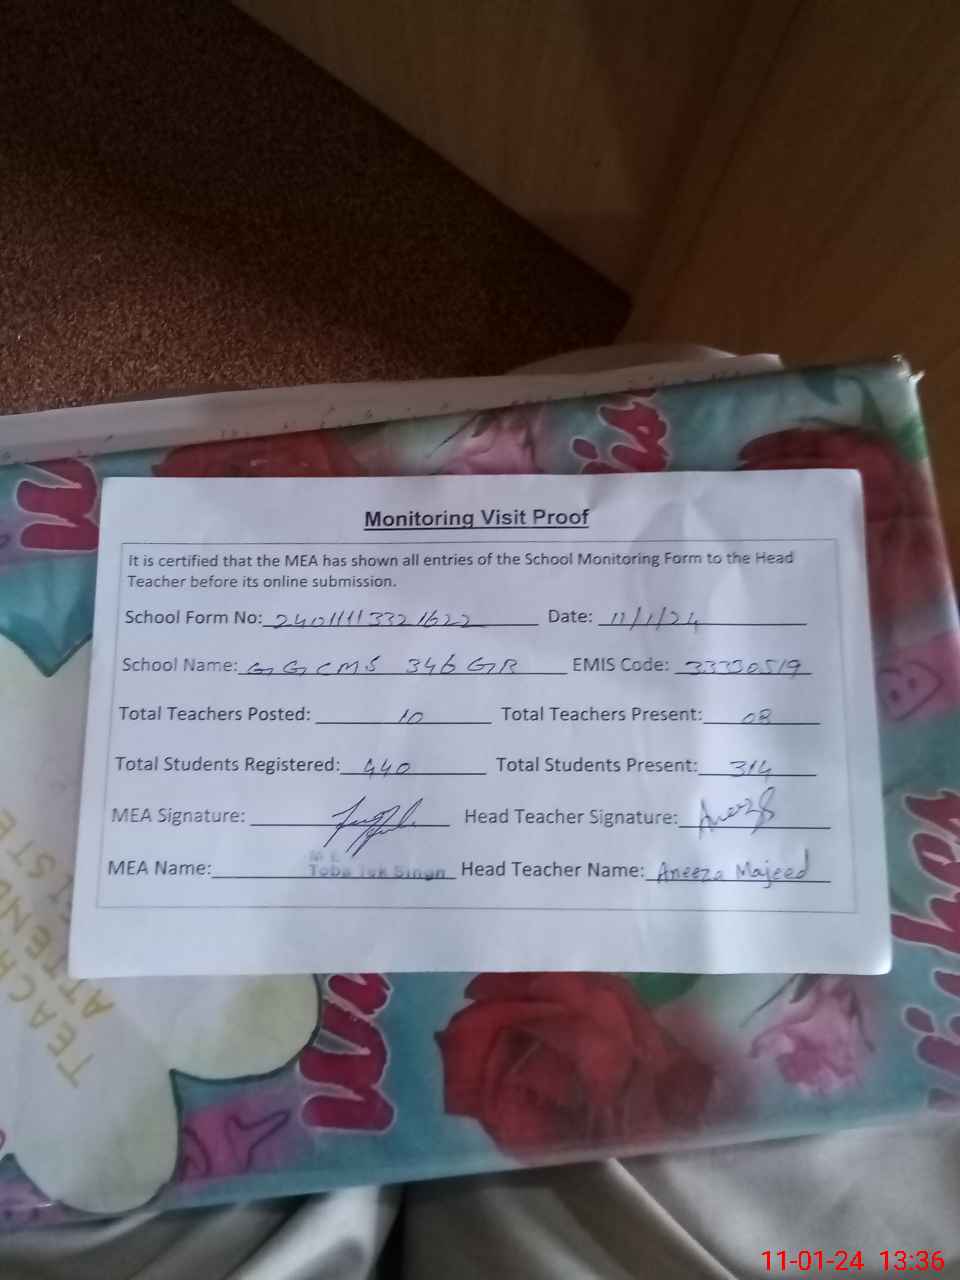 Monitoring Visit Proof
It is certified that the MEA has shown all entries of the School Monitoring Form to the Head
Teacher before its online submission.
School Form No: 24011113321622 Date: 11/1/24
School Name: GGCMS 346 GR EMIS Code: 33330519
Total Teachers Posted: 10 Total Teachers Present: 08
Total Students Registered: 440 Total Students Present: 314
MEA Signature: Head Teacher Signature:
MEA Name: Toba Tek Singh Head Teacher Name: Aneeza Majeed
11-01-24 13:36